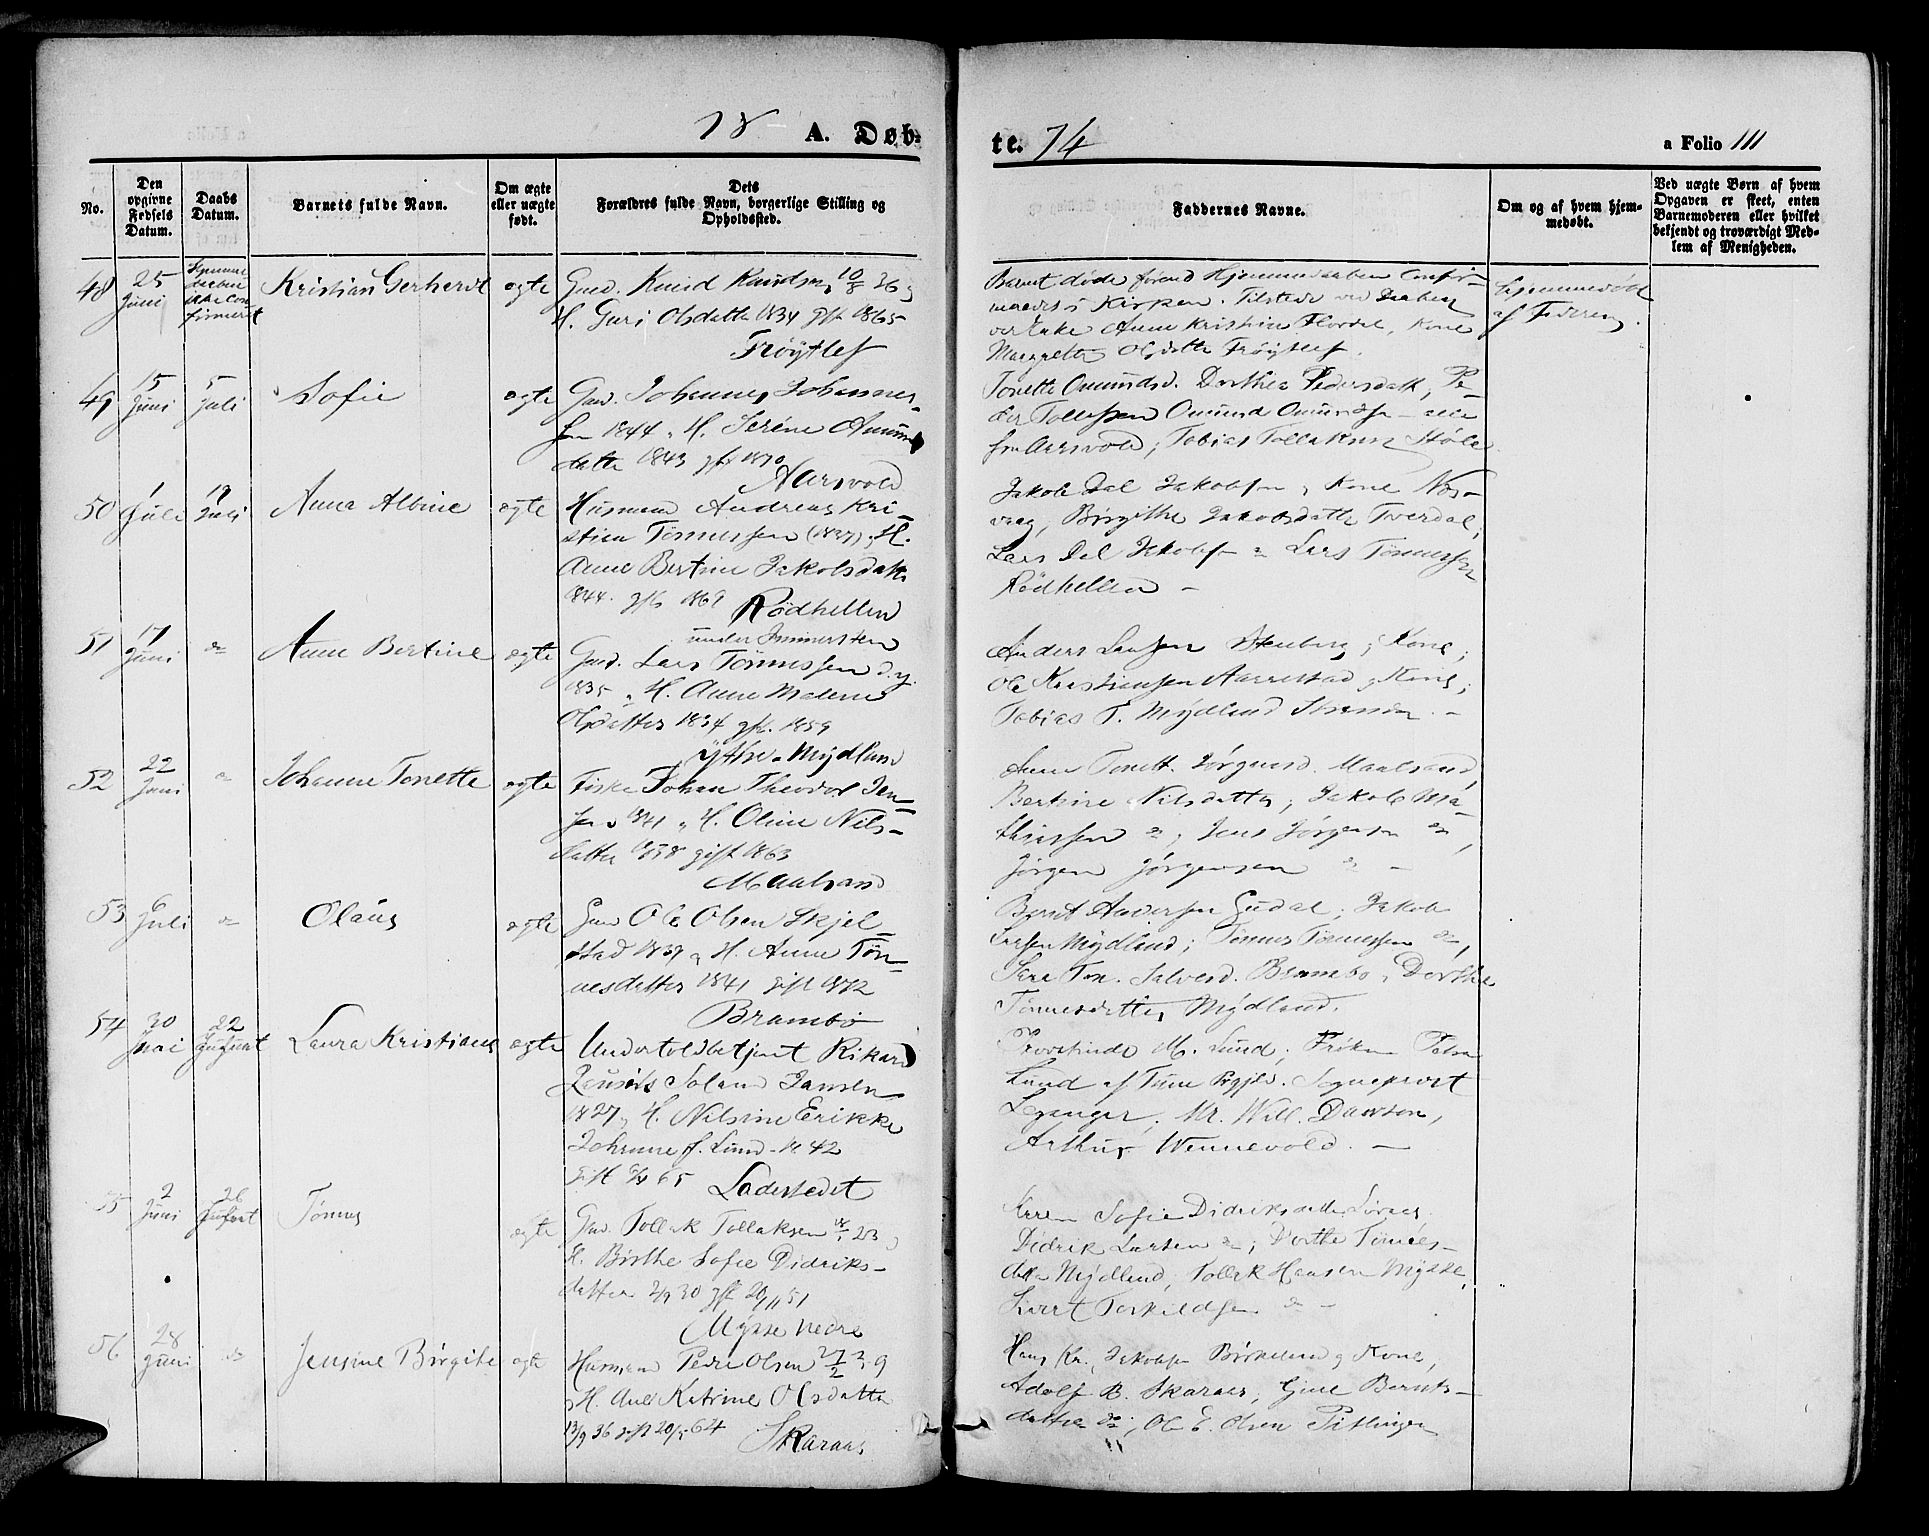 18
A. Døb-
te. 74
a Folio 111
No.
Den opgivne Fødsels Datum.
Daabs Datum.
Barnets fulde Navn.
Om ægte eller uægte født.
Dets Forældres fulde Navn, borgerlige Stilling og Opholdssted.
Faddernes Navne.
Om og af hvem hjemmedøbt.
Ved uægte Børn af hvem Opgaven er skeet, enten Barnemoderen eller hvilket bekjendt og troværdigt Medlem af Menigheden.
48
25 Juni
Hjemme daaben ikke confirmeret
Kristian Gerhardt
ægte
Gmd. Knud Knudsen 10/8 36 og
H. Guri Olsdatter 1834 gift 1865
Frøytlof
Barnet døde førend Hjemmedaaben confir-
meredes i Kirken. Tilstede ved Daaben
Anne Kristine Flordal, Kone
Margrethe Olsdatter Frøytlof.
Hjemmedøbt
af Faderen.
49
15 Juni
5 Juli
Sofie
ægte
Gmd. Johannes Johannes-
sen 1844 og H. Serine Omunds
datter 1843 gift 1870
Aarsvold
Tonette Omundsd. Dorthea Pedersdatt, Pe-
der Tollefsen Omund Omundsen alle
fra Aarsvold; Tobias Tollaksen Støle
50
1 Juli
19 Juli
Anna Albine
ægte
Husmand Andreas Kri-
stian Tønnessen (1837) og H.
Anne Bertine Jakobsdatter
1844. gift 1869 Rødhellen
under Immersten
Jakob Dal Jakobsen og Kone Nos-
vaag, Birgithe Jakobsdatter Tverdal,
Lars Dal Jakobsen do Lars Tønnessen
Rødhellen -
51
17 Juni
do
Anne Bertine
ægte
Gmd. Lars Tønnessen d.y.
1835 og H. Anne Malene
Olsdatter 1834 gift. 1859
Ythre Mydland
Anders Larsen Stenberg og Kone;
Ole Kristiansen Aarrestad og Kone;
Tobias T. Mydland
52
22 Juni
do
Johanne Tonette
ægte
Fisker Johan Theodor Jen-
sen 1841 og H. Oline Nils-
datter 1838 gift 1863
Maalsand
Anne Tonette Jørgensd. Maalsand,
Bertine Nilsdatter; Jakob Ma-
thiessen do, Jens Jørgensen do,
Jørgen Jørgensen do -
53
6 Juli
do
Olaus
ægte
Gmd Ole Olsen Skjel-
stad 1839 og H. Anne Tøn-
nesdatter 1841 gift 1872
Brambo
Bernt Andersen Gudal; Jakob
Larsen Mydland; Tønnes Tønnessen do,
Sara Ton. Salvesd. Brambo, Dorthe
Tønnesdatter Mydland.
54
30 Mai
22 August
Laura Kristiane
ægte
Undertoldbetjent Rikard
Soland Jansen
1827 og H. Nilsine Erikke
Johanne f. Lund 42
gift 65 Ladestedet
Provstinde M. Lund. Frøken Petra
Lund af Tune Prgjld. Sogneprest
Leganger, Mr. Will. Dawson,
Arthur Wennevold. -
55
2 Juni
26 August
Tønnes
ægte
Gmd. Tollak Tollaksen 23 og
H. Birthe Sofie Didriks-
datter 2/9 30 gift 20/11 51
Mysse nedre
Sofie Didriksdatter
Didrik Larsen do; Dorthe Tønnes-
datter Mydland, Tollak Hansen Mysse,
Sivert Torkildsen do -
56
28 Juni
do
Jensine Birgite
ægte
Husmand Peder Olsen 27/2 39
og H. Ane Katrine Olsdatter
13/9 36 gift 20/5 64 Skaraas
Hans Kr. Jakobsen Birkeland og Kone,
Adolf B. Skaraas, Gine Bernts-
datter do; Ole E. Olsen